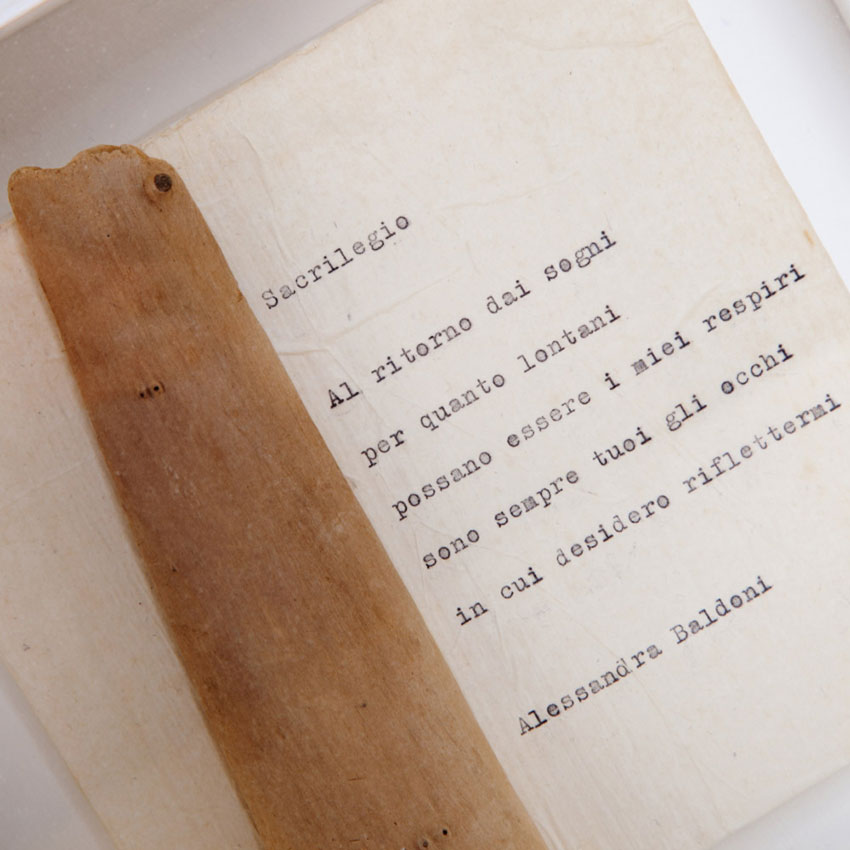 Sacrilegio
Al ritorno dai sogni
per quanto lontani
possano essere i miei respiri
sono sempre tuoi gli occhi
in cui desidero riflettermi
Alessandra Baldoni